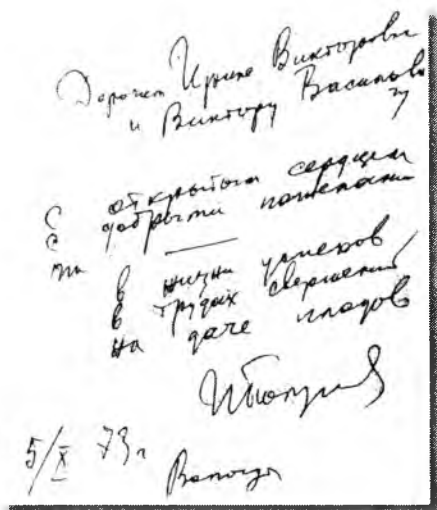 Дорогим Ирине Викторовне
и Виктору Васильеви
чу
С открытым сердцем
С добрыми пожелани
ями
в жизни успехов
в трудах свершений
на даче плодов
5/X 73 г
Вологда